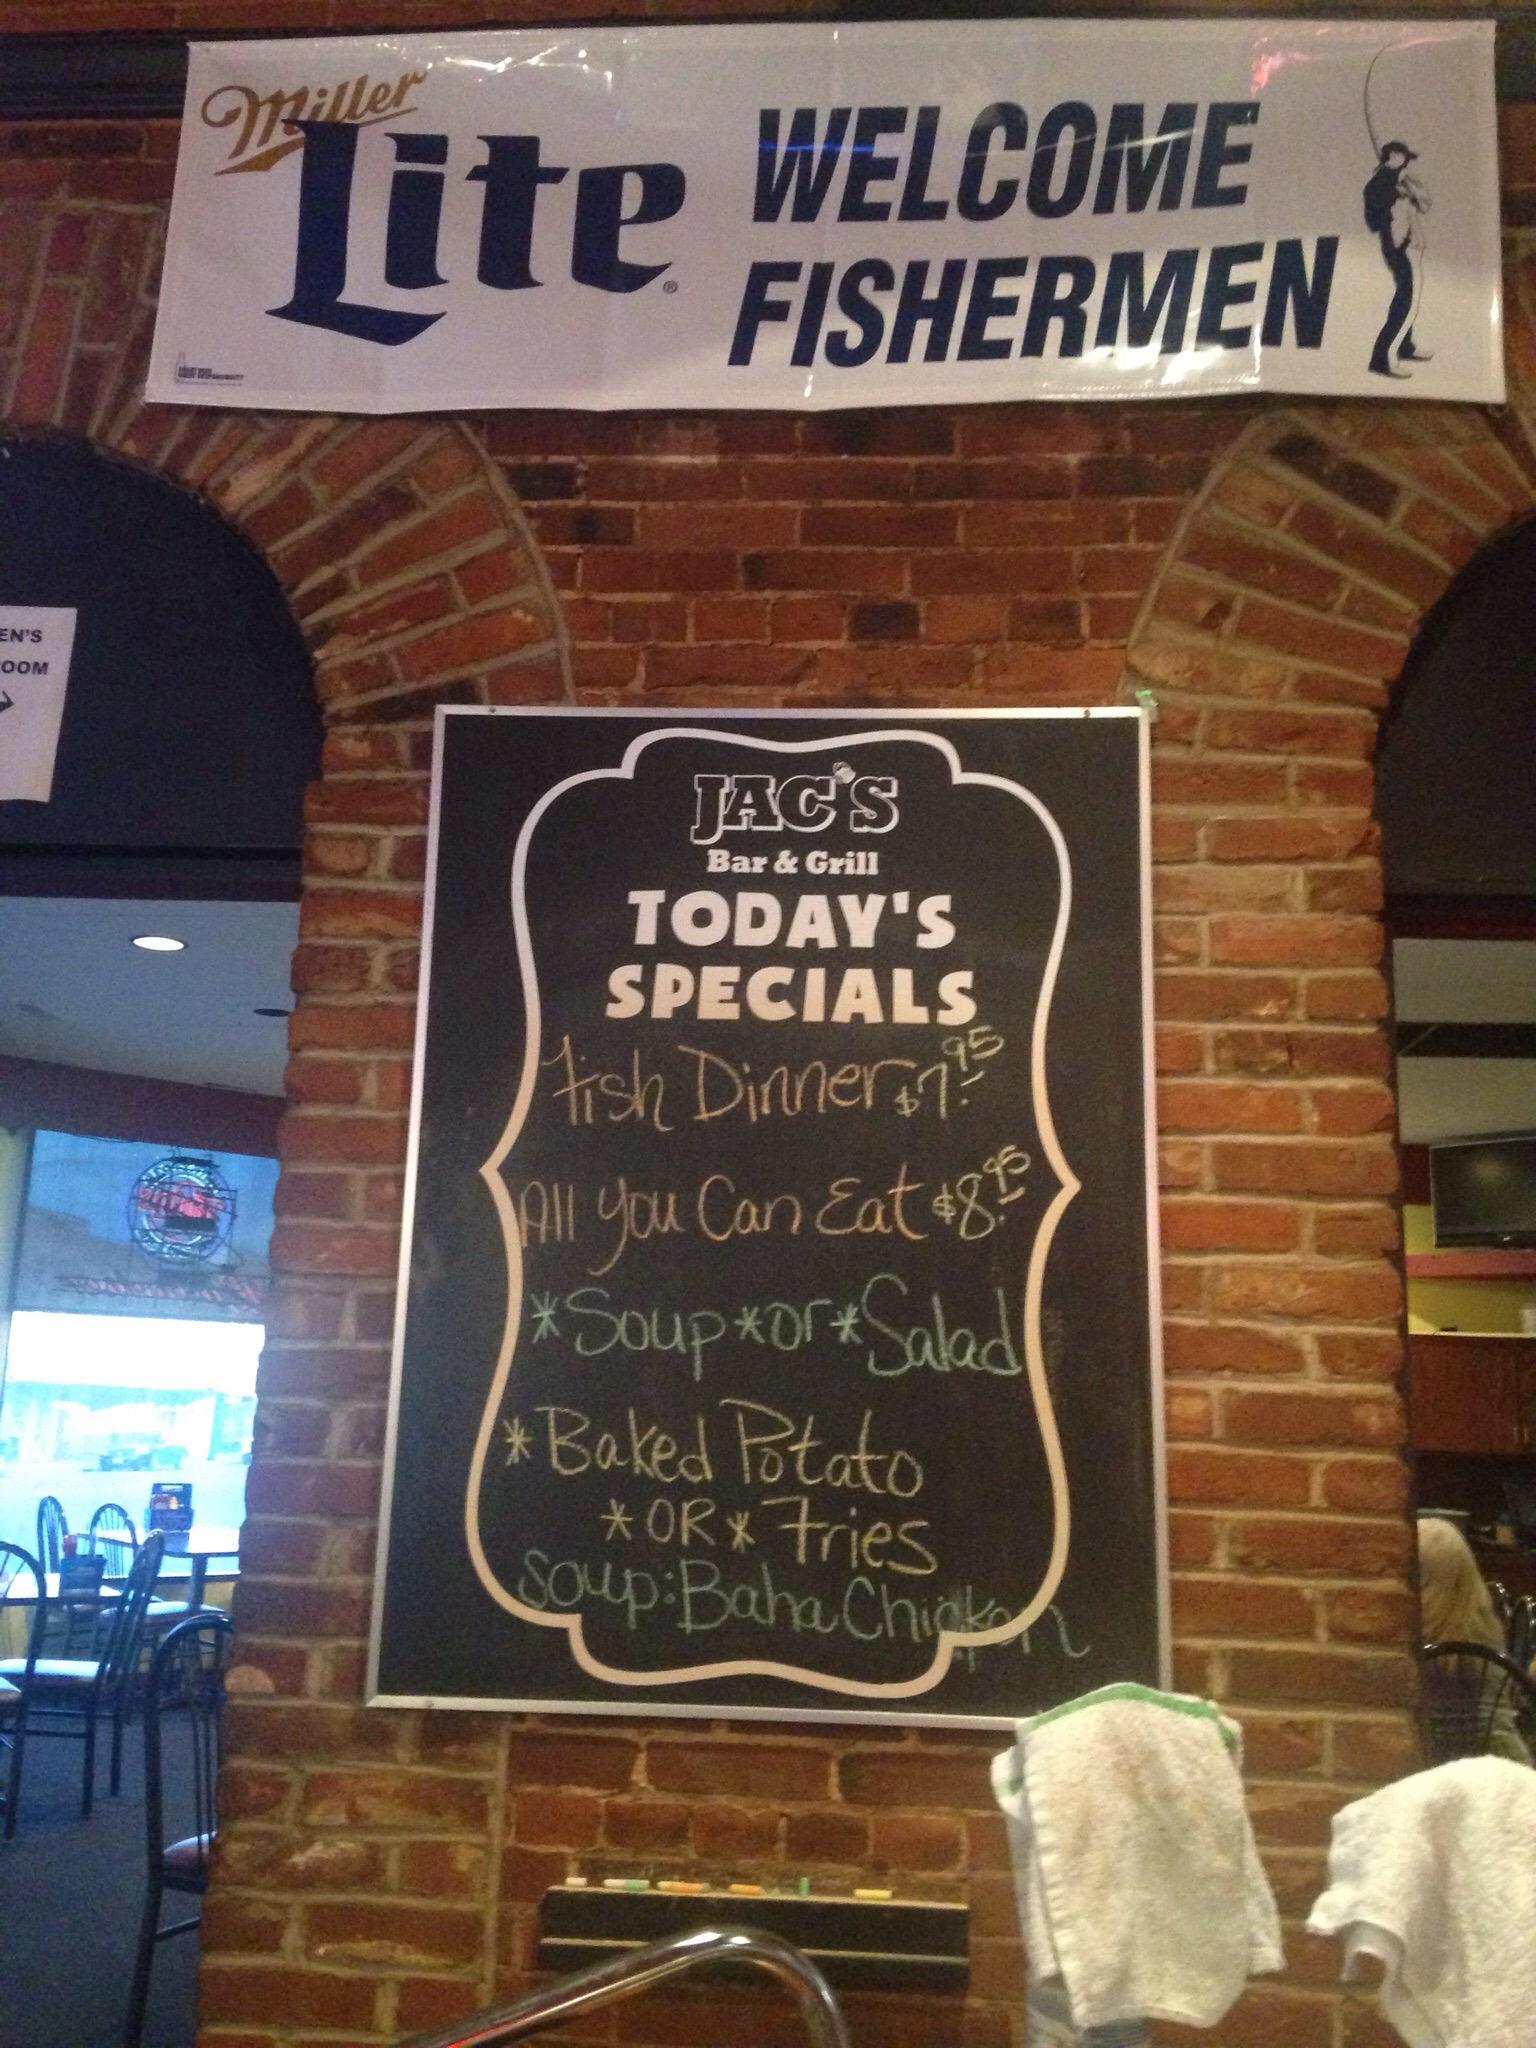 Miller
Lite®
WELCOME
FISHERMEN
EN'S
OOM
JAC'S
Bar & Grill
TODAY'S
SPECIALS
Fish Dinner $7.95
All you Can Eat $8.95
*Soup *or* Salad
*Baked Potato
*OR* Fries
soup: Baha Chicken